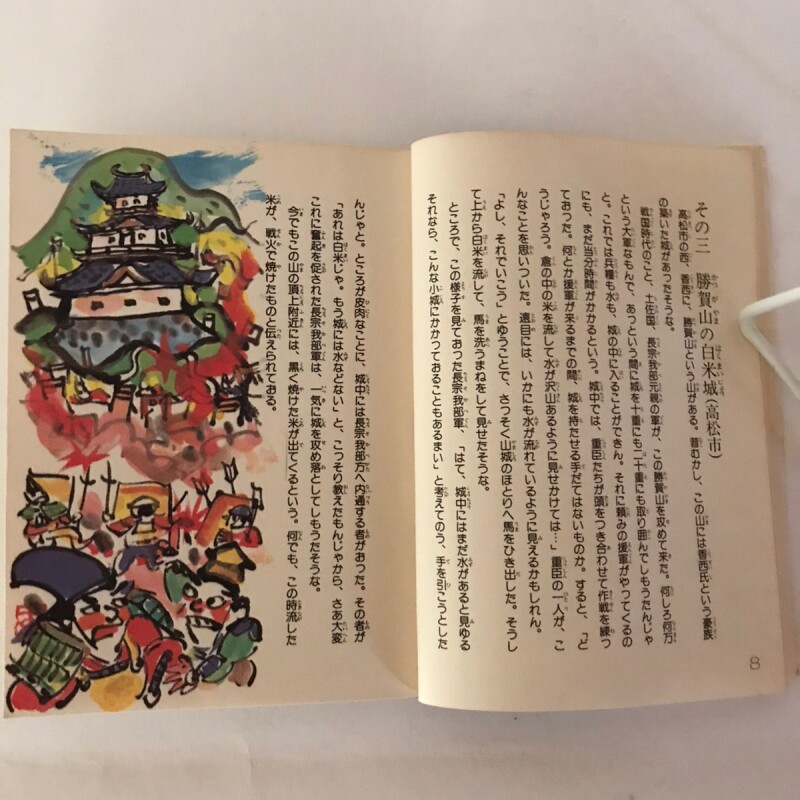 その三　勝賀山の白米城（高松市）
高松市の西、香西に、勝賀山という山がある。昔むかし、この山には香西氏という豪族
の築いた城があったそうな。
戦国時代のこと、土佐国、長宗我部元親の軍が、この勝賀山を攻めて来た。何しろ何万
という大軍なもんで、あっという間に城を十重にも二十重にも取り囲んでしもうたんじゃ
と。これでは兵糧も水も、城の中に入ることができん。それに頼みの援軍がやってくるの
にも、まだ当分時間がかかるという。城中では、重臣たちが頭をつき合わせて作戦を練っ
ておった。何とか援軍が来るまでの間、城を持たせる手だてはないものか。すると、「ど
うじゃろう。倉の中の米を流して水が沢山あるように見せかけては…」重臣の一人が、こ
んなことを思いついた。遠目には、いかにも水が流れているように見えるかもしれん。
「よし、それでいこう」とゆうことで、さっそく山城のほとりへ馬をひき出した。そうし
て上から白米を流して、馬を洗うまねをして見せたそうな。
ところで、この様子を見ておった長宗我部軍、「はて、城中にはまだ水があると見ゆる
それなら、こんな小城にかかっておることもあるまい」と考えてのう、手を引こうとした
8
んじゃと。ところが皮肉なことに、城中には長宗我部方へ内通する者がおった。その者が
「あれは白米じゃ。もう城には水などない」と、こっそり教えたもんじゃから、さあ大変
これに奮起を促された長宗我部軍は、一気に城を攻め落としてしもうだそうな。
今でもこの山の頂上附近には、黒く焼けた米が出てくるという。何でも、この時流した
米が、戦火で焼けたものと伝えられておる。